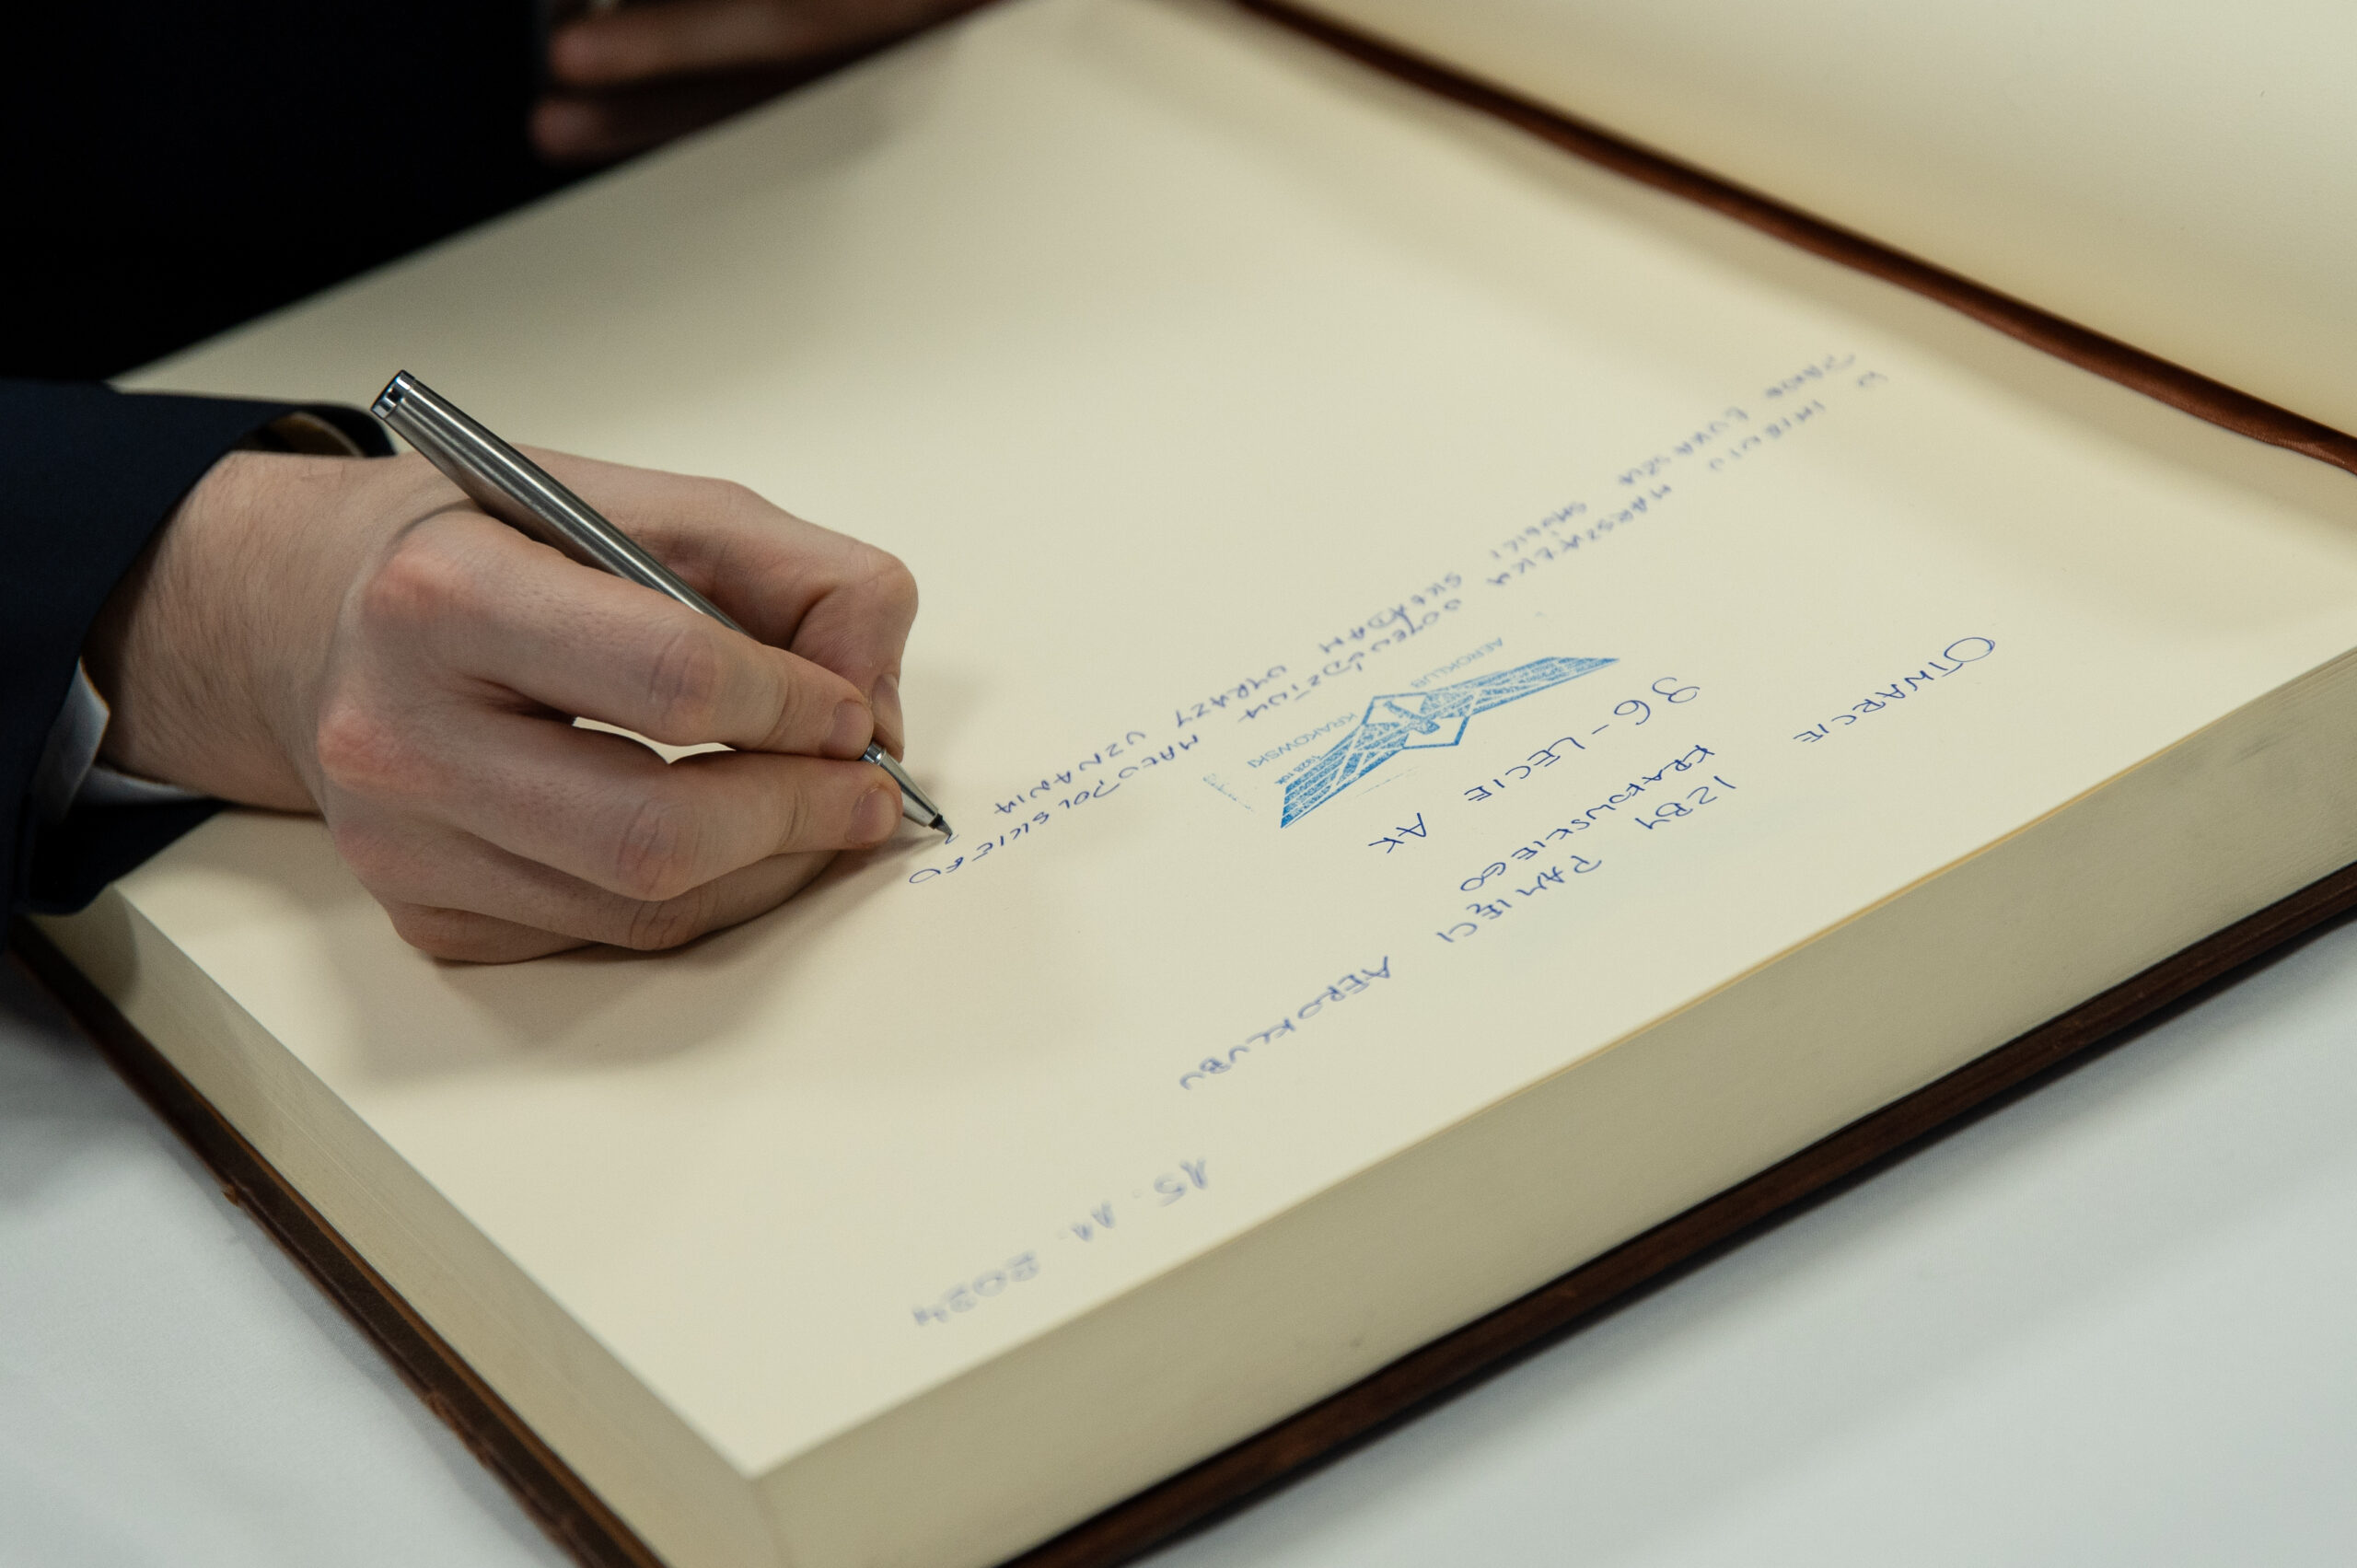 15.11.2024
OTWARCIE IZBY PAMIĘCI AEROKLUBU
KRAKOWSKIEGO
96-LECIE AK
AEROKLUB KRAKOWSKI
W IMIENIU MARSZAŁKA WOJEWÓDZTWA MAŁOPOLSKIEGO
PANA ŁUKASZA SMÓŁKI SKŁADAM WYRAZY UZNANIA Z